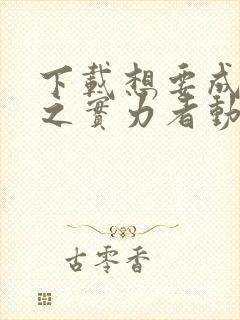 下載想要成
之實力者動
古零香